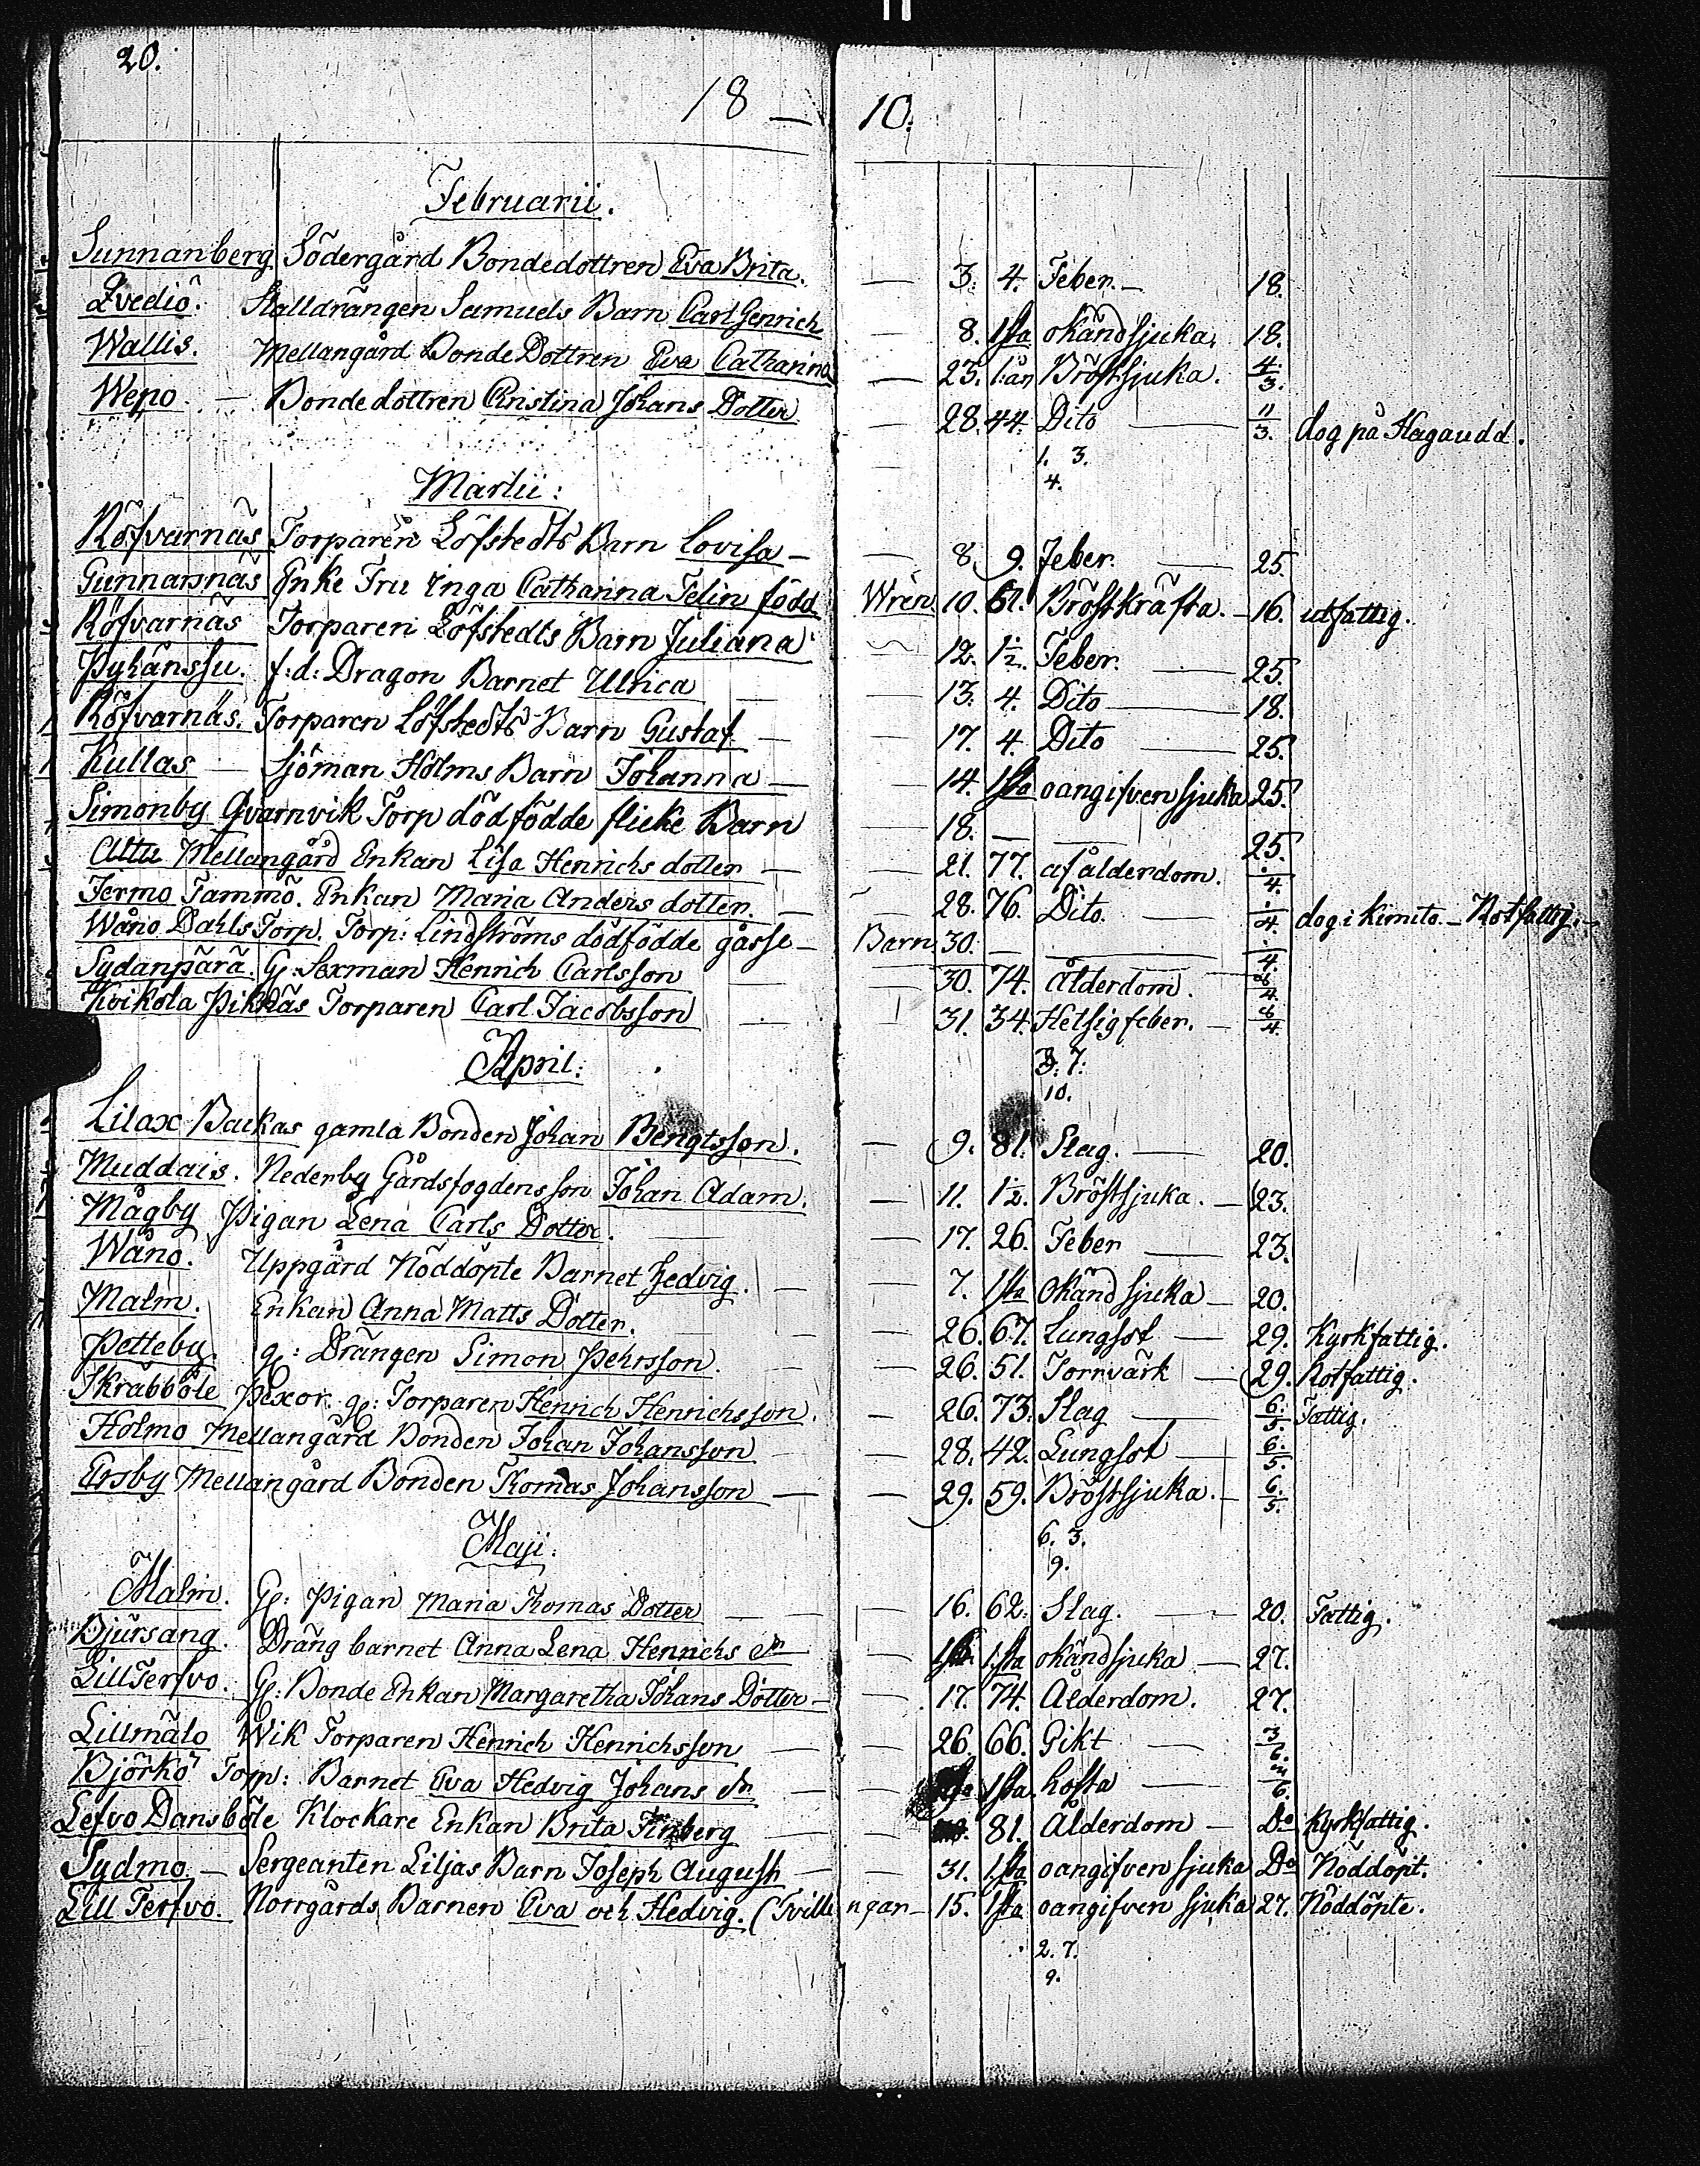 20.
18 — 10.
Februarii.
Sunnanberg Södergård Bondedottren Eva Brita. — 3. 4. Feber. — 18.
Qvediö. Stalldrängen Samuels Barn Carl Henrich — 8. 1sta okänd sjuka. 18.
Wallis. Mellangård Bonde Dottren Eva Catharina — 25. 1:år Bröstsjuka. 4/3.
Wepo. — Bonde dottren Cristina Johans Dotter — 28. 44. Dito — 11/3. dog på Hagaudd.
1. 3.
4.
Martii:
Röfvarnäs Torparen Löfstedts Barn Lovisa — 8. 9. Feber. — 25.
Gunnarsnäs Enke Fru Inga Catharina Felin född Wren. 10. 61. Bröstkräfta. — 16. utfattig.
Röfvarnäs Torparen Löfstedts Barn Juliana 12. 1 1/2. Feber. — 25.
Pyhänssu. f:d: Dragon Barnet Ulrica — 13. 4. Dito — 18.
Röfvarnäs. Torparen Löfstedts Barn Gustaf — 17. 4. Dito — 25.
Kullas — Sjöman Holms Barn Johanna — 14. 1sta oangifven sjuka 25.
Simonby Qvarnvik Torp dödfödde flicke Barn — 18. — 25.
Attu Mellangård Enkan Lisa Henrichs dotter — 21. 77. af ålderdom. 1/4.
Jermo Tammo. Enkan Maria Anders dotter. — 28. 76. Dito. — 1/4. dog i Kimito. — Rotfattig. —
Wåno Dahls Torp. Torp: Lindströms dödfödde gåsse — Barn 30. — 1/4.
Sydanpärä. G. Sexman Henrich Carlsson — 30. 74. Ålderdom. 8/4.
Koikola Pikkäs Torparen Carl Jacobsson — 31. 34. Hetsig feber. — 8/4.
3. 7.
10.
April:
Lilax Backas gamla Bonden Johan Bengtsson. — 9. 81. Slag. — 20.
Muddais. Nederby Gårdsfogdens son Johan Adam. — 11. 1 1/2. Bröstsjuka. — 23.
Mågby Pigan Lena Carls Dotter. — 17. 26. Feber — 23.
Wåno. Uppgård Nöddöpte Barnet Hedvig. — 7. 1sta Okänd sjuka — 20.
Malm. Enkan Anna Matts Dotter. — 26. 67. Lungsot — 29. Kyrkfattig.
Petteby. g: Drängen Simon Pehrsson. — 26. 51. Torrvärk — 29. Rotfattig.
Skräbböle Pexor. g: Torparen Henrich Henrichsson. — 26. 73. Slag — 6/5. Fattig.
Holmo Mellangård Bonden Johan Johansson — 28. 42. Lungsot — 6/5.
Ersby Mellangård Bonden Thomas Johansson — 29. 59. Bröstsjuka. — 6/5.
6. 3.
9.
Maji:
Malm. G: Pigan Maria Thomas Dotter — 16. 62. Slag. — 20. Fattig.
Bjürsang. Dräng barnet Anna Lena Henrichs dr — 1sta okänd sjuka — 27.
Lill Terfvo. G: Bonde Enkan Margaretha Johans Dotter — 17. 74. Ålderdom. 27.
Lillmälo Wik Torparen Henrich Henrichsson — 26. 66. Gikt — 3/6.
Björkö Torp: Barnet Eva Hedvig Johans dr — 1sta hosta — 6.
Lefvo Dansböle Klockare Enkan Brita Finberg — 81. Ålderdom — Do Kyrkfattig.
Sydmo — Sergeanten Liljas Barn Joseph August — 31. 1sta oangifven sjuka Do Nöddöpt.
Lill Terfvo. Norrgårds Barnen Eva och Hedvig. (Tvillingar — 15. 1sta oangifven sjuka 27. Nöddöpte.
2. 7.
9.